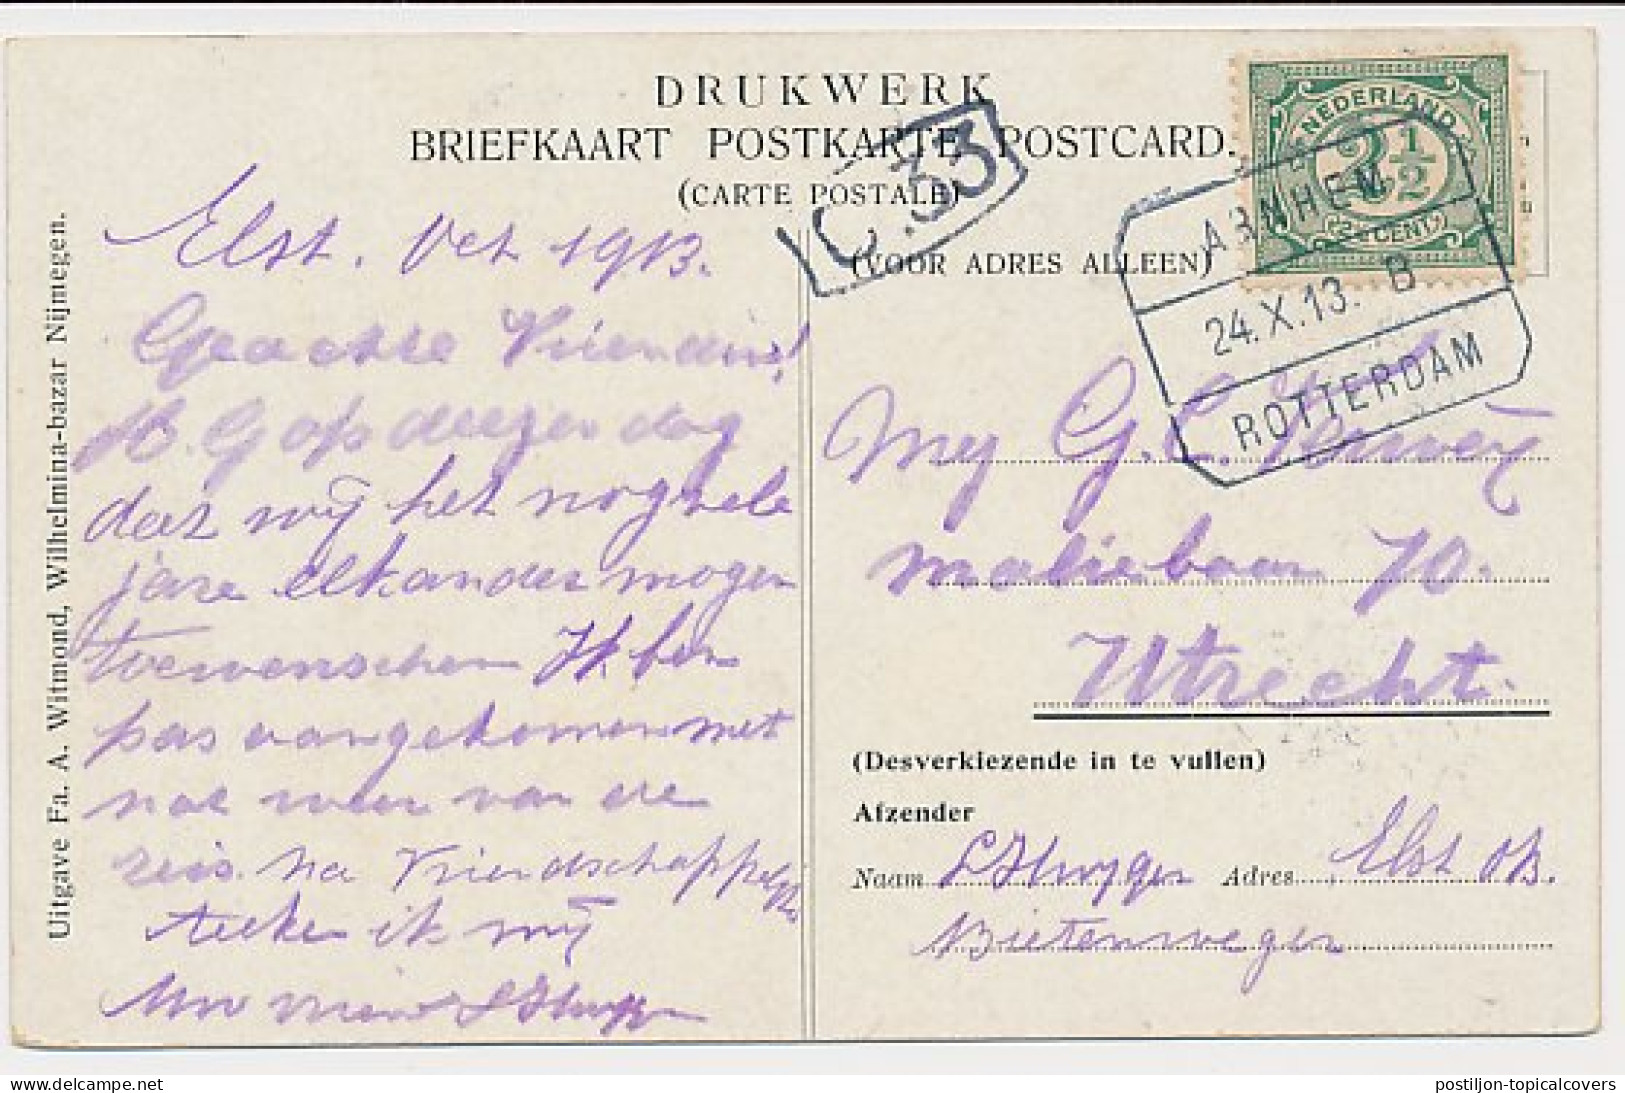 DRUKWERK
BRIEFKAART POSTKARTE POSTCARD.
(CARTE POSTALE)
(VOOR ADRES ALLEEN)
C.33
NEDERLAND
2½
(2½ CENT)
ARNHEM
24.X.13. B
ROTTERDAM
Uitgave Fa. A. Witmond, Wilhelmina-bazar Nijmegen.
Elst. Oct 1913.
Geachte Vriendin!
H. G op deezen dag
dat wij het nog vele
jare elkander mogen
toewenschen Ik ben
pas aangekomen met
van de
reis. na Vriendschappel
teeken ik mij
Uw
Mej G. C.
Maliebaan 70.
Utrecht.
(Desverkiezende in te vullen)
Afzender
Naam Adres Elst OB.